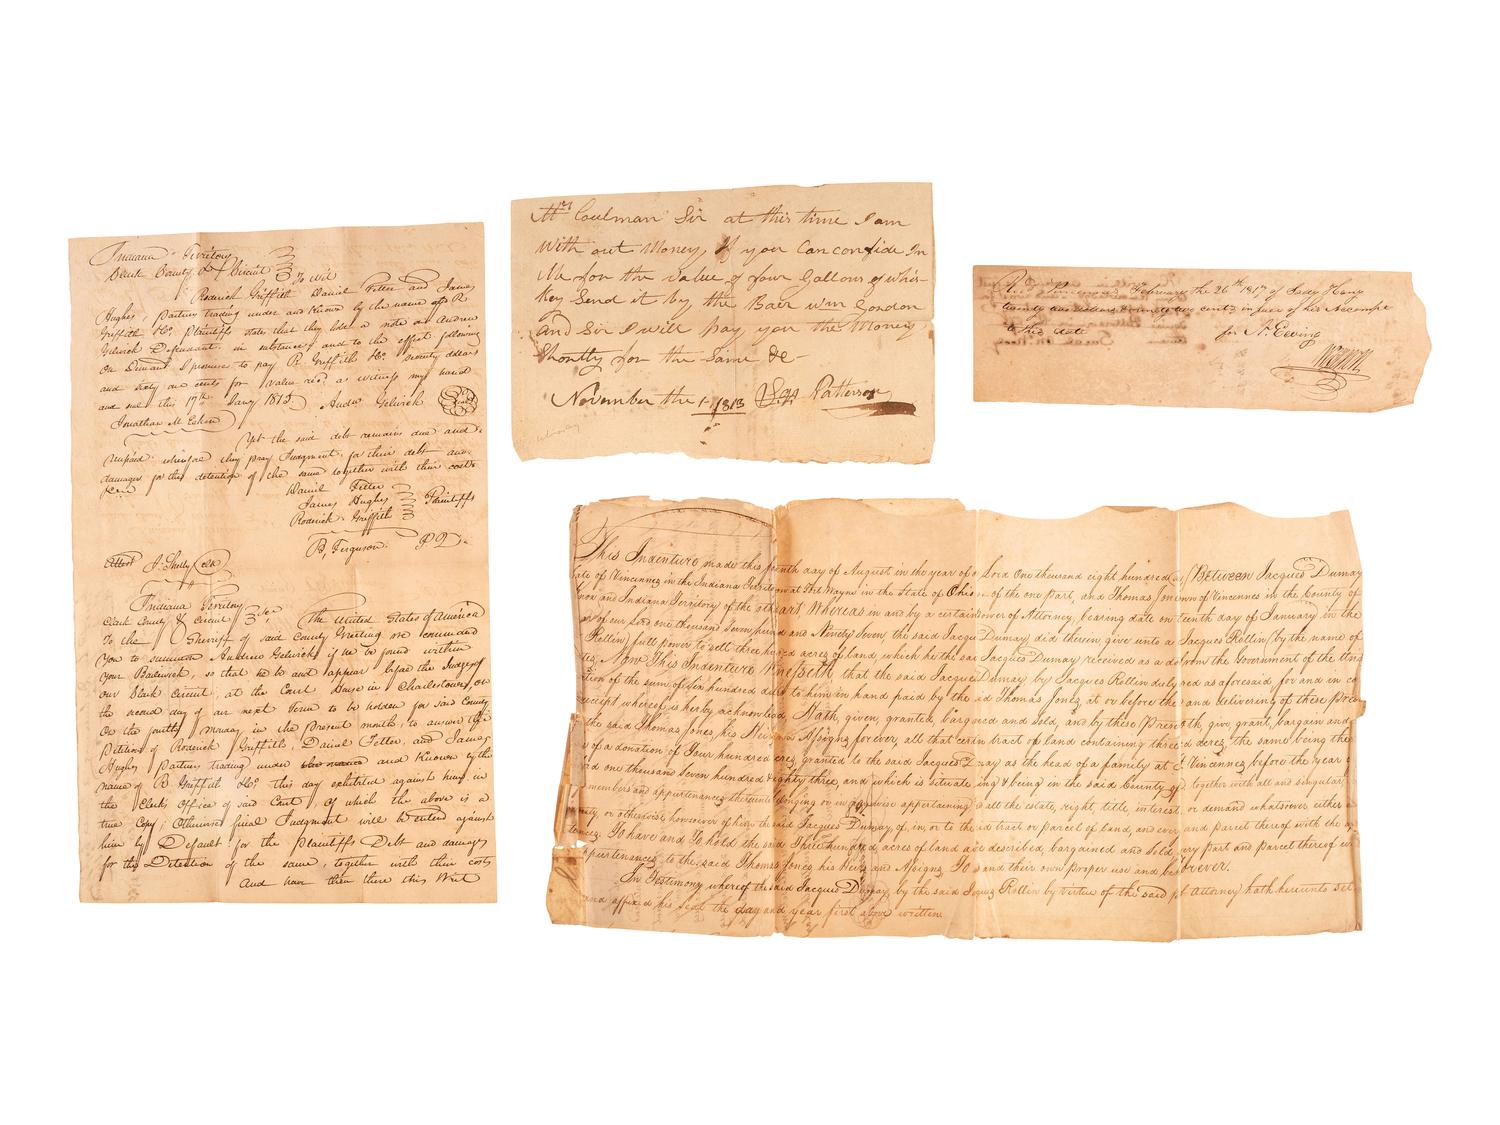 Indiana Territory
Clark County & Circuit To wit
Roderick Griffith Daniel Fetter and James
Hughes, Partners trading under and Known by the name of R
Griffith & Co. Plaintiffs state that they hold a note on Andrew
Gelwick Defendant in substance and to the effect following
On Demand I promise to pay R Griffith & Co. Seventy dollars
and sixty one cents for value recd as witness my hand
and seal this 17th Jany 1815 Andw Gelwick Seal
Jonathan
Yet the said debt remains due and
unpaid wherefore they pray Judgment for their debt and
damages for the detention of the same together with their costs
Daniel Fetter
James Hughes Plaintiffs
Roderick Griffith
B, Ferguson. P Q.
Attest J. Shelly Clk
Indiana Territory
Clark County & Circuit The United States of America
To the Sheriff of said County Greeting we command
you to summon Andrew Gelwick if he be found within
your Bailiwick, so that he be and appear before the Judge of
our Clark Circuit, at the Court House in Charlestown, on
the second day of our next Term to be holden for said County
on the fourth monday in the present month, to answer the
Petition of Roderick Griffith, Daniel Fetter, and James
Hughes Partners trading under and Known by the
name of R Griffith & Co. this day exhibited against him, in
the Clerks Office of said Court, of which the above is a
true Copy; Otherwise final Judgment will be entered against
him by Default for the Plaintiffs Debt and damages
for the Detention of the same, together with their costs
And have then there this Writ
Mr Coulman Sir at this time I am
With out Money, If you Can confide In
Me for the value of four Gallons of whis-
key Send it by the Bair wm Gordon
and Sir I will pay you the Money
Shortly for the same &c-
November the 1-1813 Patterson
Rd. Vincennes February the 26th 1817 of
twenty two dollars & ninety two cents in full of his Accompt
to this date
for N. Ewing
This Indenture made this day of August in the year of our Lord One thousand eight hundred Between Jacques Dumay
late of Vincennes in the Indiana Territory at Fort Wayne in the State of Ohio of the one part, and Thomas Jones of Vincennes in the County of
Knox and Indiana Territory of the other part, Whereas in and by a certain Power of Attorney, bearing date on day of January in the
year of our Lord one thousand Seven hundred and Ninety Seven the said Jacques Dumay did therein give unto a Jacques Rollin (by the name of
Rollin) full power to sell three hundred acres of land, which he the said Jacques Dumay received as a donation from the Government of the United
Now This Indenture Witnesseth, that the said Jacques Dumay by Jacques Rollin duly as aforesaid for and in
of the sum of Six hundred dollars to him in hand paid by the said Thomas Jones, at or before the and delivering of these
receipt whereof is hereby acknowledged, Hath, given, granted, bargained and sold, and by these Presents, give, grant, bargain and
the said Thomas Jones, his Heirs Assigns forever, all that certain tract of land containing three hundred acres, the same being the
of a donation of Four hundred acres granted to the said Jacques Dumay as the head of a family at Vincennes before the year
and one thousand Seven hundred & eighty three, and which is situate lying & being in the said County together with all and singular
members and appurtenances thereunto belonging or in anywise appertaining all the estate, right, title, interest or demand whatsoever either
or otherwise howsoever of him the said Jacques Dumay, of, in, or to the said tract or parcel of land, and every and parcel thereof with the
To have and To hold the said Three hundred acres of land described, bargained and Sold, every part and parcel thereof
appurtenances, to the said Thomas Jones his Heirs and Assigns To and their own proper use and forever.
In Testimony whereof the said Jacques Dumay, by the said Jacques Rollin by virtue of the said Attorney hath hereunto set
and affixed his Seal the day and year first above written